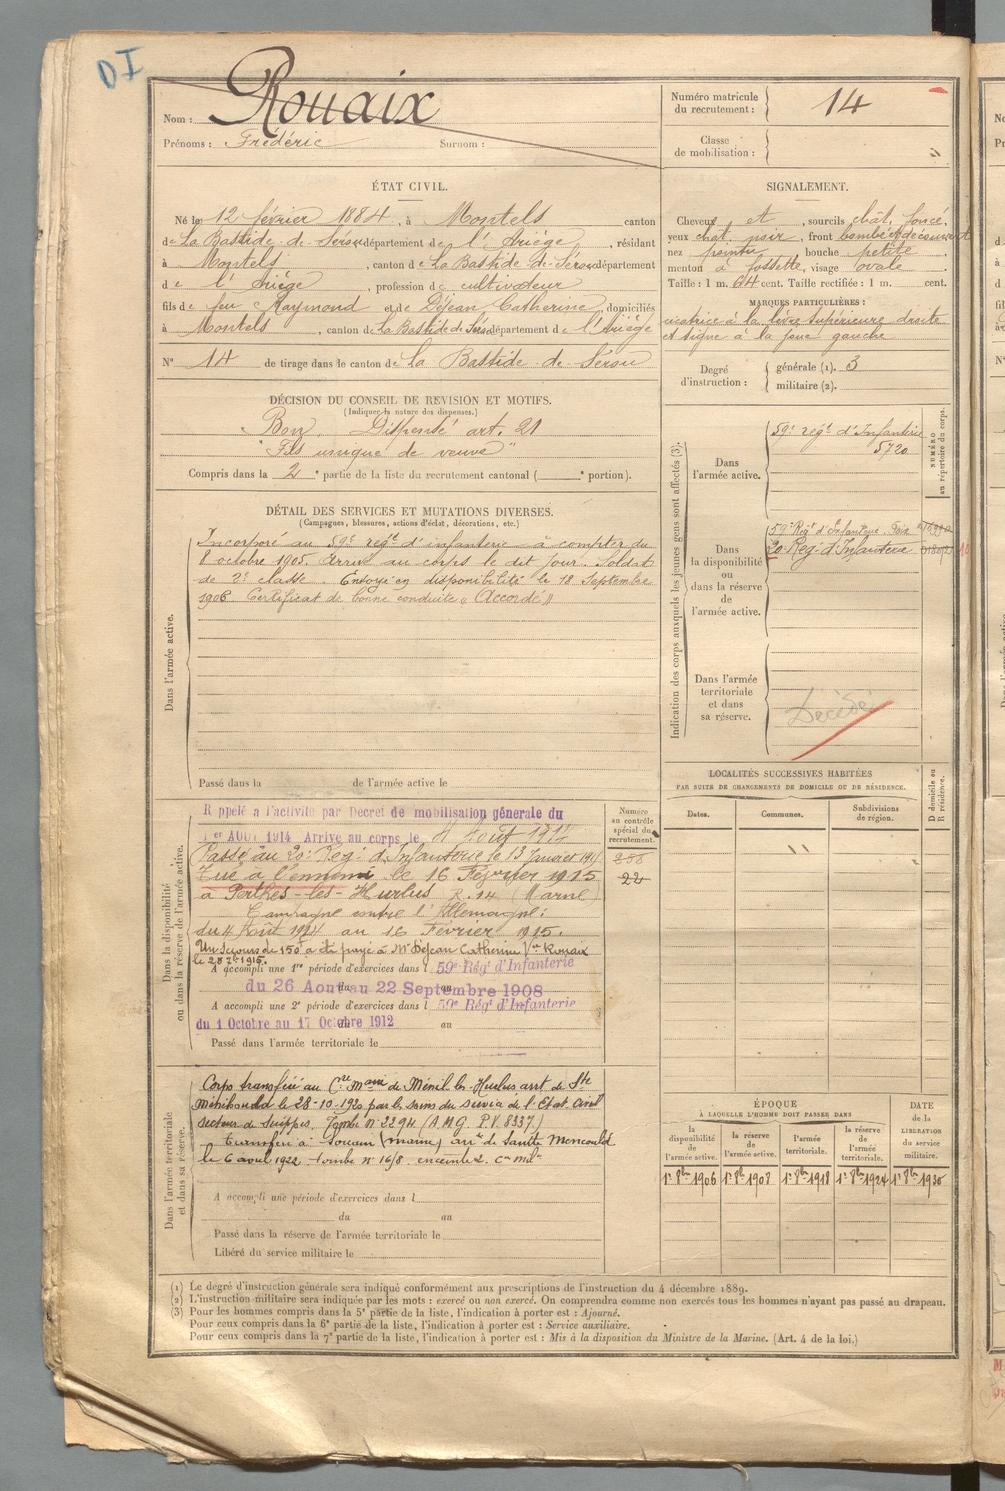 DI
Nom : Rouaix
Prénoms : Frédéric Surnom :
Numéro matricule du recrutement : 14
Classe de mobilisation :
ÉTAT CIVIL.
Né le 12 février 1884, à Montels canton
de La Bastide-de-Sérou département de l'Ariège, résidant
à Montels, canton de La Bastide-de-Sérou département
de l'Ariège, profession de cultivateur
fils de feu Raymond et de Déjean Catherine, domiciliés
à Montels, canton de La Bastide de Sérou département de l'Ariège
N° 14 de tirage dans le canton de La Bastide-de-Sérou
SIGNALEMENT.
Cheveux et, sourcils chât. foncé,
yeux chat. noir, front bombé et découvert
nez pointu, bouche petite
menton à fossette, visage ovale.
Taille : 1 m. 64 cent. Taille rectifiée : 1 m. cent.
MARQUES PARTICULIÈRES :
cicatrice à la lèvre supérieure droite
et signe à la joue gauche
Degré d'instruction :
générale (1). 3
militaire (2).
DÉCISION DU CONSEIL DE REVISION ET MOTIFS.
(Indiquer la nature des dispenses.)
Bon, Dispensé art. 21
"Fils unique de veuve"
Compris dans la 2e partie de la liste du recrutement cantonal ( e portion).
DÉTAIL DES SERVICES ET MUTATIONS DIVERSES.
(Campagnes, blessures, actions d'éclat, décorations, etc.)
Dans l'armée active.
Incorporé au 59e régt d'infanterie à compter du
8 octobre 1905. Arrivé au corps le dit jour. Soldat
de 2e classe. Envoyé en disponibilité le 18 Septembre
1906 Certificat de bonne conduite "Accordé"
Passé dans la de l'armée active le
Indication des corps auxquels les jeunes gens sont affectés (3).
NUMÉRO au répertoire du corps.
Dans l'armée active.
59e régt d'Infanterie
5720
Dans la disponibilité ou dans la réserve de l'armée active.
59e Régt d'Infanterie Foix
20 Reg. d'Infanterie
Dans l'armée territoriale et dans sa réserve.
Décédé
Dans la disponibilité ou dans la réserve de l'armée active.
R ppelé a l'activité par Decret de mobilisation générale du
1er AOUT 1914 Arrive au corps le 4 Août 1914
Passé au 20e Reg. d'Infanterie le 13 Janvier 1915
Tué à l'ennemi le 16 Février 1915
à Perthes-les-Hurlus R. 14 (Marne)
Campagne contre l'Allemagne :
du 4 Août 1914 au 16 Février 1915.
Un secours de 150f a été payé à Me Déjean Catherine Vve Rouaix
le 28 7bre 1915.
A accompli une 1re période d'exercices dans l 59e Régt d'Infanterie
du 26 Aout au 22 Septembre 1908
A accompli une 2e période d'exercices dans l 59e Régt d'Infanterie
du 1 Octobre au 17 Octobre 1912 au
Passé dans l'armée territoriale le
Numéro au contrôle spécial du recrutement.
288
22
LOCALITÉS SUCCESSIVES HABITÉES
PAR SUITE DE CHANGEMENTS DE DOMICILE OU DE RÉSIDENCE.
Dates. Communes. Subdivisions de région. D domicile ou R résidence.
Dans l'armée territoriale et dans sa réserve.
Corps transféré au Cre Mare de Ménil les Hurlus arrt de Ste
Ménehould le 28-10-1920 par les soins du service de l'Etat civil
secteur de Suippes. Tombe n° 2294 (A.M.G. P.V. 8337.)
transféré à Souain (marne) arrt de Sainte Menehould
le 6 avril 1922 - tombe n° 16/8. enceinte 2. Cre milre
A accompli une période d'exercices dans l
du au
Passé dans la réserve de l'armée territoriale le
Libéré du service militaire le
ÉPOQUE
À LAQUELLE L'HOMME DOIT PASSER DANS
la disponibilité de l'armée active. la réserve de l'armée active. l'armée territoriale. la réserve de l'armée territoriale.
DATE de la LIBÉRATION du service militaire.
1er 8bre 1906 1er 8bre 1908 1er 8bre 1918 1er 8bre 1924 1er 8bre 1930
(1) Le degré d'instruction générale sera indiqué conformément aux prescriptions de l'instruction du 4 décembre 1889.
(2) L'instruction militaire sera indiquée par les mots : exercé ou non exercé. On comprendra comme non exercés tous les hommes n'ayant pas passé au drapeau.
(3) Pour les hommes compris dans la 5e partie de la liste, l'indication à porter est : Ajourné.
Pour ceux compris dans la 6e partie de la liste, l'indication à porter est : Service auxiliaire.
Pour ceux compris dans la 7e partie de la liste, l'indication à porter est : Mis à la disposition du Ministre de la Marine. (Art. 4 de la loi.)